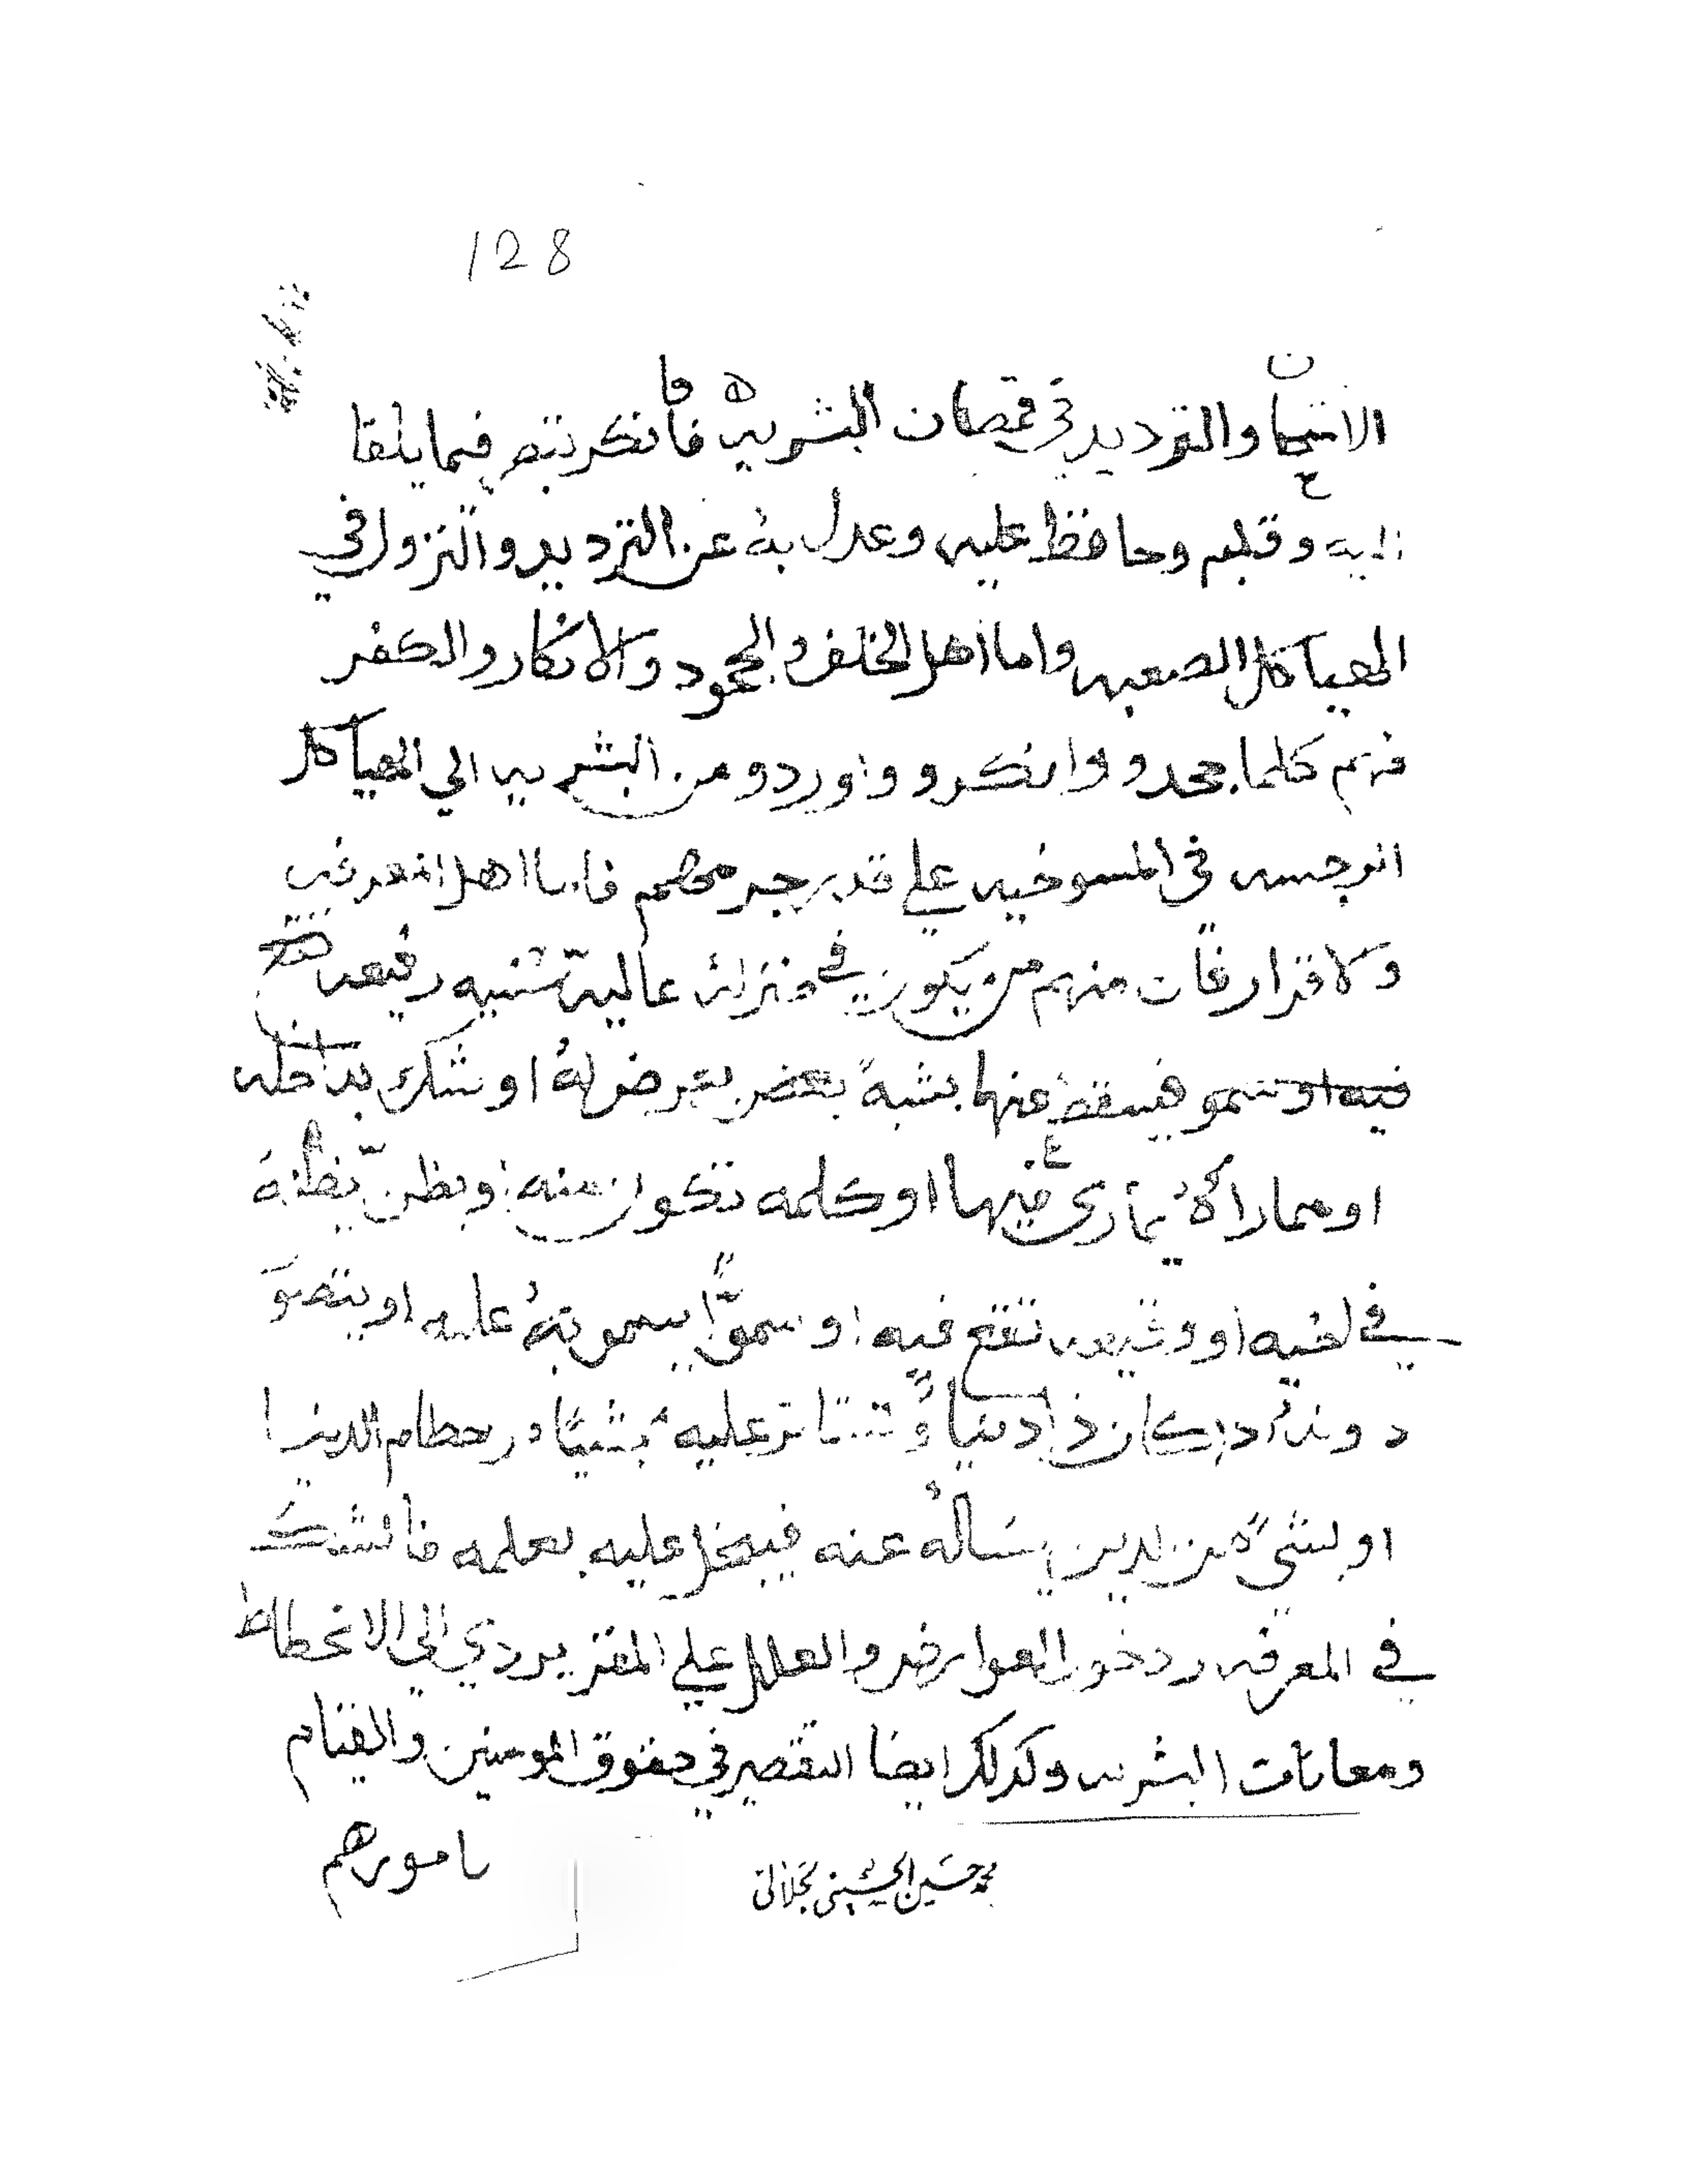 128
الامتحان والترديد في قمصان البشريه فاما تكررتم فيما يلقا
اليه وقبلهم وحافظ عليه وعدل به عن الترديد والنزول في
الهياكل الصعبه واما اهل الخلف والجحود والانكار والكفر
فهم كلما جحدوا وانكرو وردو من البشريه الي الهياكل
الرجسه في المسوخيه علي قدر جرمهم فاما اهل المعرفه
والاقرار فان منهم من يكون في منزله عالية سنيه رفيعه
فيسقط عنها بشبهة تعرض له او شك بداخله
او مماراة يماري فيها او كلمه تكون منه او بظن يظنه
في اخيه او وقيعه تقع فيه او سموًا يسمو به عليه او يتصو
دونه اذا كان ذا دنيا وتتاثر عليه بشيًا من حطام الدنيا
او بشيء من الدين يساله عنه فيبخل عليه بعلمه فالشك
في المعرفه ودخول العوارض والعلل علي المقر يردي الي الانحطاط
ومعانات البشريه وكذلك ايضا التقصير في حقوق المومنين والقيام
بامورهم
محمد حسين الحسيني الجلالي